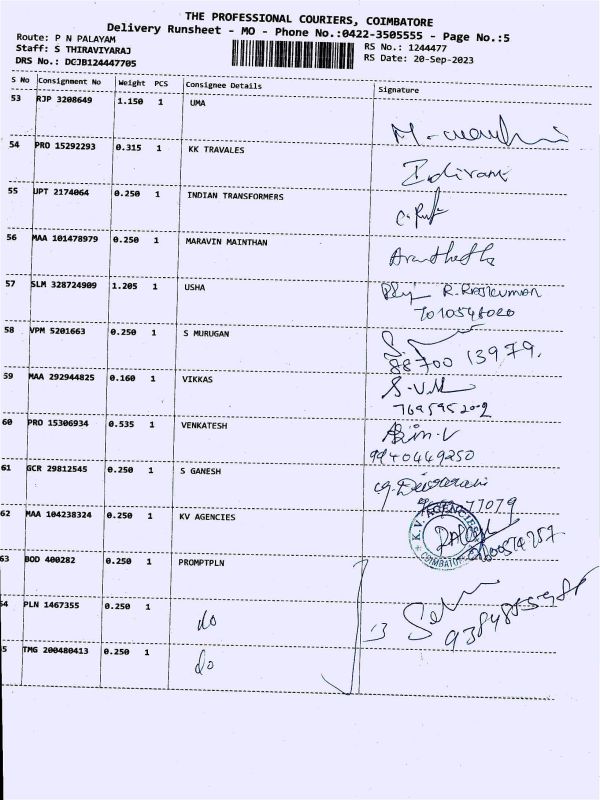 THE PROFESSIONAL COURIERS, COIMBATORE
Delivery Runsheet - MO - Phone No.:0422-3505555 - Page No.:5
Route: P N PALAYAM
Staff: S THIRAVIYARAJ
RS No.: 1244477
DRS No.: DCJB124447705
RS Date: 20-Sep-2023
S No Consignment No Weight PCS Consignee Details Signature
53 RJP 3208649 1.150 1 UMA
54 PRO 15292293 0.315 1 KK TRAVALES
Indirani
55 UPT 2174064 0.250 1 INDIAN TRANSFORMERS
56 MAA 101478979 0.250 1 MARAVIN MAINTHAN
57 SLM 328724909 1.205 1 USHA
R. Rajkumar
7010546020
58 VPM 5201663 0.250 1 S MURUGAN
88700 13979.
59 MAA 292944825 0.160 1 VIKKAS
7695952002
60 PRO 15306934 0.535 1 VENKATESH
9940449250
61 GCR 29812545 0.250 1 S GANESH
77079
62 MAA 104238324 0.250 1 KV AGENCIES
K.V. AGENCIES
COIMBATORE
63 BOD 400282 0.250 1 PROMPTPLN
64 PLN 1467355 0.250 1 do
13
5 TMG 200480413 0.250 1 do